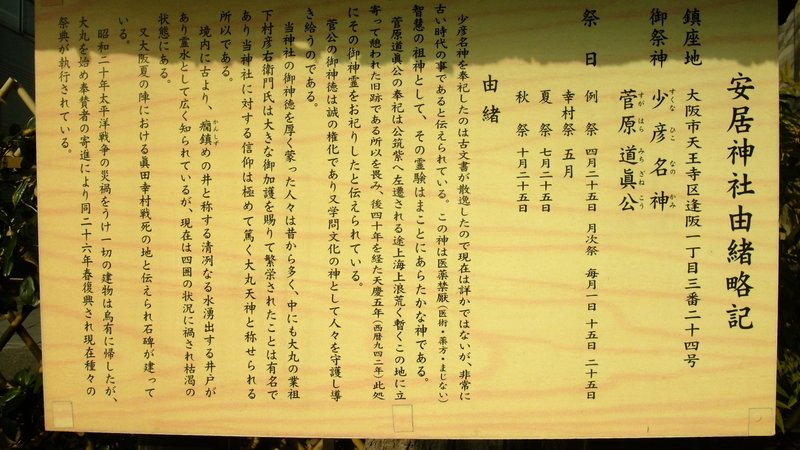 安居神社由緒略記
鎮座地　大阪市天王寺区逢阪一丁目三番二十四号
御祭神　少彦名神
すくなひこなのかみ
菅原道眞公
すがはらみちざねこう
祭日　例祭　四月二十五日　月次祭　毎月一日　十五日　二十五日
幸村祭　五月
夏祭　七月二十五日
秋祭　十月二十五日
由緒
少彦名神を奉祀したのは古文書が散逸したので現在は詳かではないが、非常に
古い時代の事であると伝えられている。この神は医薬禁厭(医術・薬方・まじない)
智慧の祖神として、その霊験はまことにあらたかな神である。
菅原道眞公の奉祀は公筑紫へ左遷される途上海上浪荒く暫くこの地に立
寄って憩われた旧跡である所以を畏み、後四十年を経た天慶五年(西暦九四二年)此処
にその御神霊をお祀りしたと伝えられている。
菅公の御神徳は誠の権化であり又学問文化の神として人々を守護し導
き給うのである。
当神社の御神徳を厚く蒙った人々は昔から多く、中にも大丸の業祖
下村彦右衛門氏は大きな御加護を賜りて繁栄されたことは有名で
あり当神社に対する信仰は極めて篤く大丸天神と称せられる
所以である。
境内に古より、癇鎮めの井と称する清冽なる水湧出する井戸が
かんしず
あり霊水として広く知られているが、現在は四囲の状況に禍され枯渇の
状態にある。
又大阪夏の陣における眞田幸村戦死の地と伝えられ石碑が建って
いる。
昭和二十年太平洋戦争の災禍をうけ一切の建物は烏有に帰したが、
大丸を始め奉賛者の寄進により同二十六年春復興され現在種々の
祭典が執行されている。